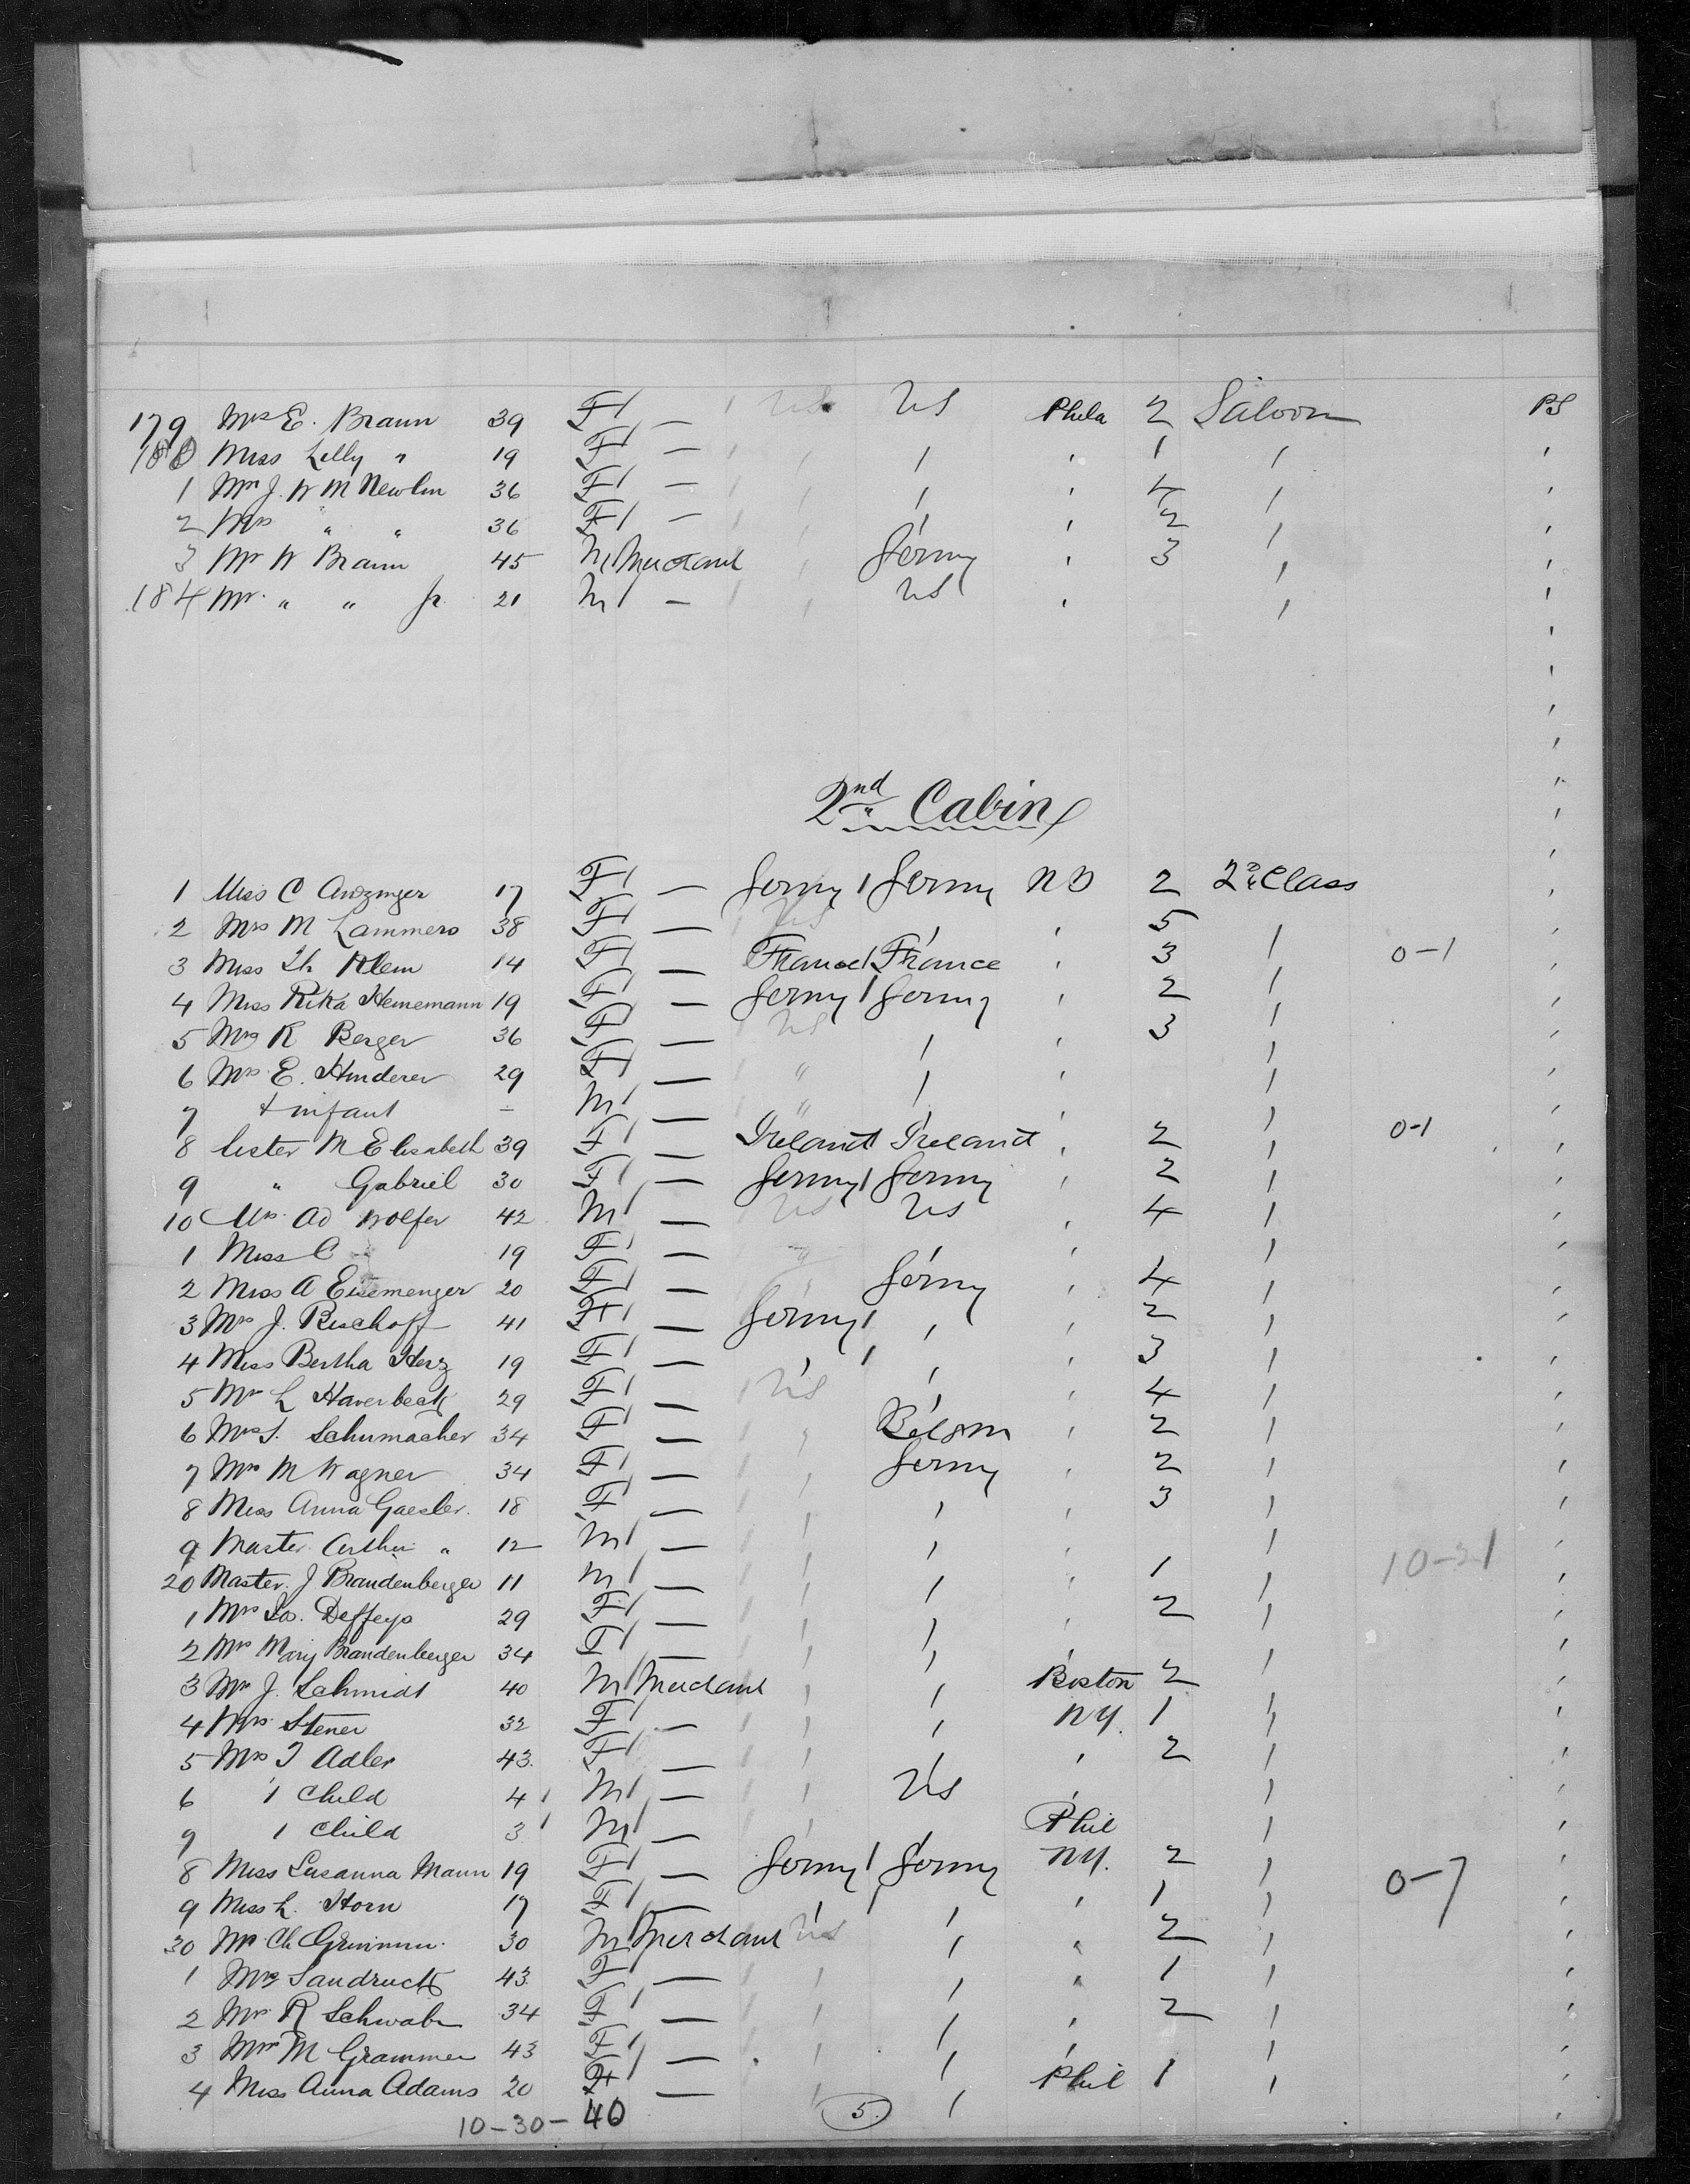 179 Mrs E. Braun 39 F — US US Phila 2 Saloon PS
180 Miss Lilly " 19 F — 1
1 Mrs J. W M Newlin 36 F — 4
2 Mrs " " 36 F — 2
3 Mr W Braun 45 M Merchant Germy 3
184 Mr. " " Jr. 21 M — US
2nd Cabin
1 Miss C 17 F — Germy Germy 2 2nd Class
2 Mrs M Lammers 38 F — US 5
3 Miss Th Klein 14 F — France France 3 0-1
4 Miss Rika Heinemann 19 F — Germy Germy 2
5 Mrs K Berger 36 F — US 3
6 Mrs E. Hinderer 29 F — "
7 + infant — M — "
8 Sister M Elisabeth 39 F — Ireland Ireland 2 0-1
9 " Gabriel 30 F — Germy Germy 2
10 Mr. Ad Wolfer 42 M — US US 4
1 Miss C " 19 F —
2 Miss A Eisemenger 20 F — Germy 4
3 Mrs J. Bischoff 41 F — Germy 2
4 Miss Bertha Herz 19 F — 3
5 Mr L Haverbeck 29 F — US 4
6 Mrs S. Schumacher 34 F — 2
7 Mrs M Wagner 34 F — Germy 2
8 Miss Anna Gaesler 18 F — 3
9 Master Arthur " 12 M — 10-31
20 Master J Brandenberger 11 M — 1
1 Mrs Jos. Deffeyo 29 F — 2
2 Mrs Mary Brandenberger 34 F —
3 Mr J. Schmidt 40 M Merchant Boston 2
4 Mrs Stener 32 F — NY. 1
5 Mrs J Adler 43 F — 2
6 1 Child 4 M — US
7 1 Child 3 M — Phil
8 Miss Susanna Mann 19 F — Germy Germy NY. 2 0-7
9 Miss L. Horn 17 F — 1
30 Mr Ch 30 M Merchant US 2
1 Mrs Sandruck 43 F — 1
2 Mrs R Schwabe 34 F — 2
3 Mrs M Grammer 43 F —
4 Miss Anna Adams 20 F — Phil 1
10-30- 40 5.